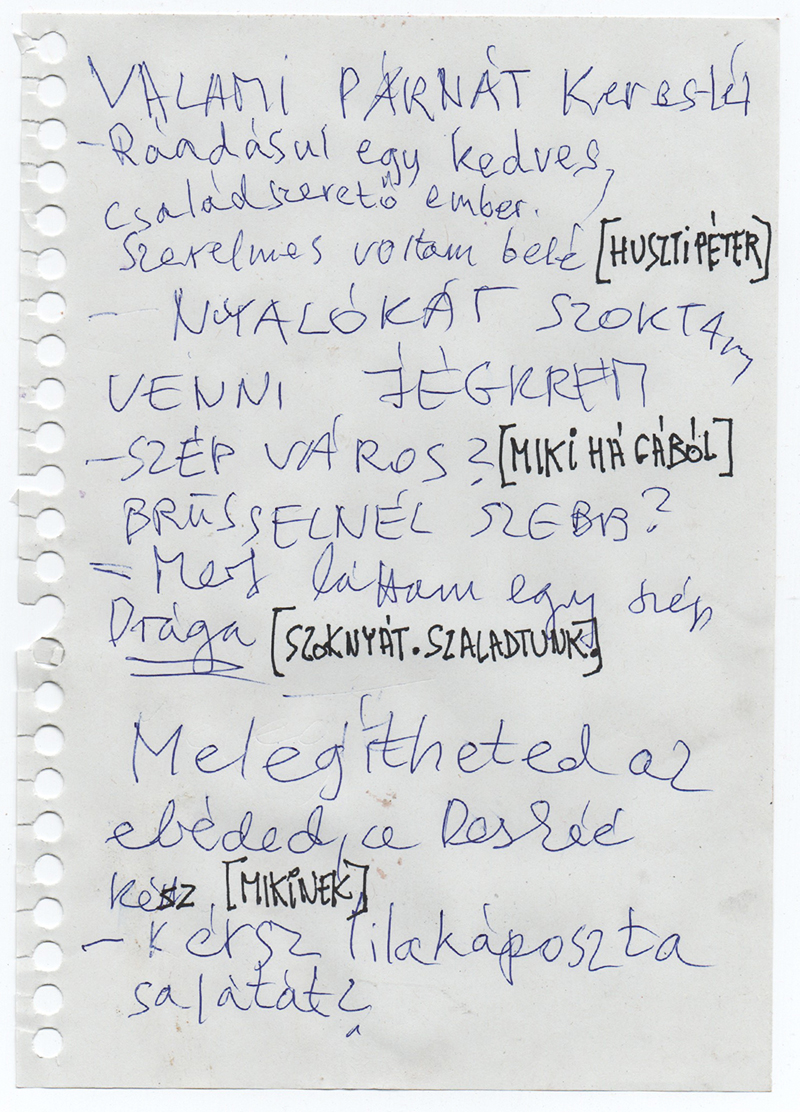 VALAMI PÁRNÁT Kerestél
- Ráadásul egy kedves,
családszerető ember.
Szerelmes voltam belé [HUSZTI PÉTER]
- NYALÓKÁT SZOKTAm
VENNI JÉGKRÉM
- SZÉP VÁROS? [MIKI HÁGÁBÓL]
BRÜSSELNÉL SZEBB?
- Mert láttam egy szép
Drága [SZOKNYÁT. SZALADTUNK.]
Melegítheted az
ebéded, a
kész. [MIKINEK]
- Kérsz lilakáposzta
salátát?